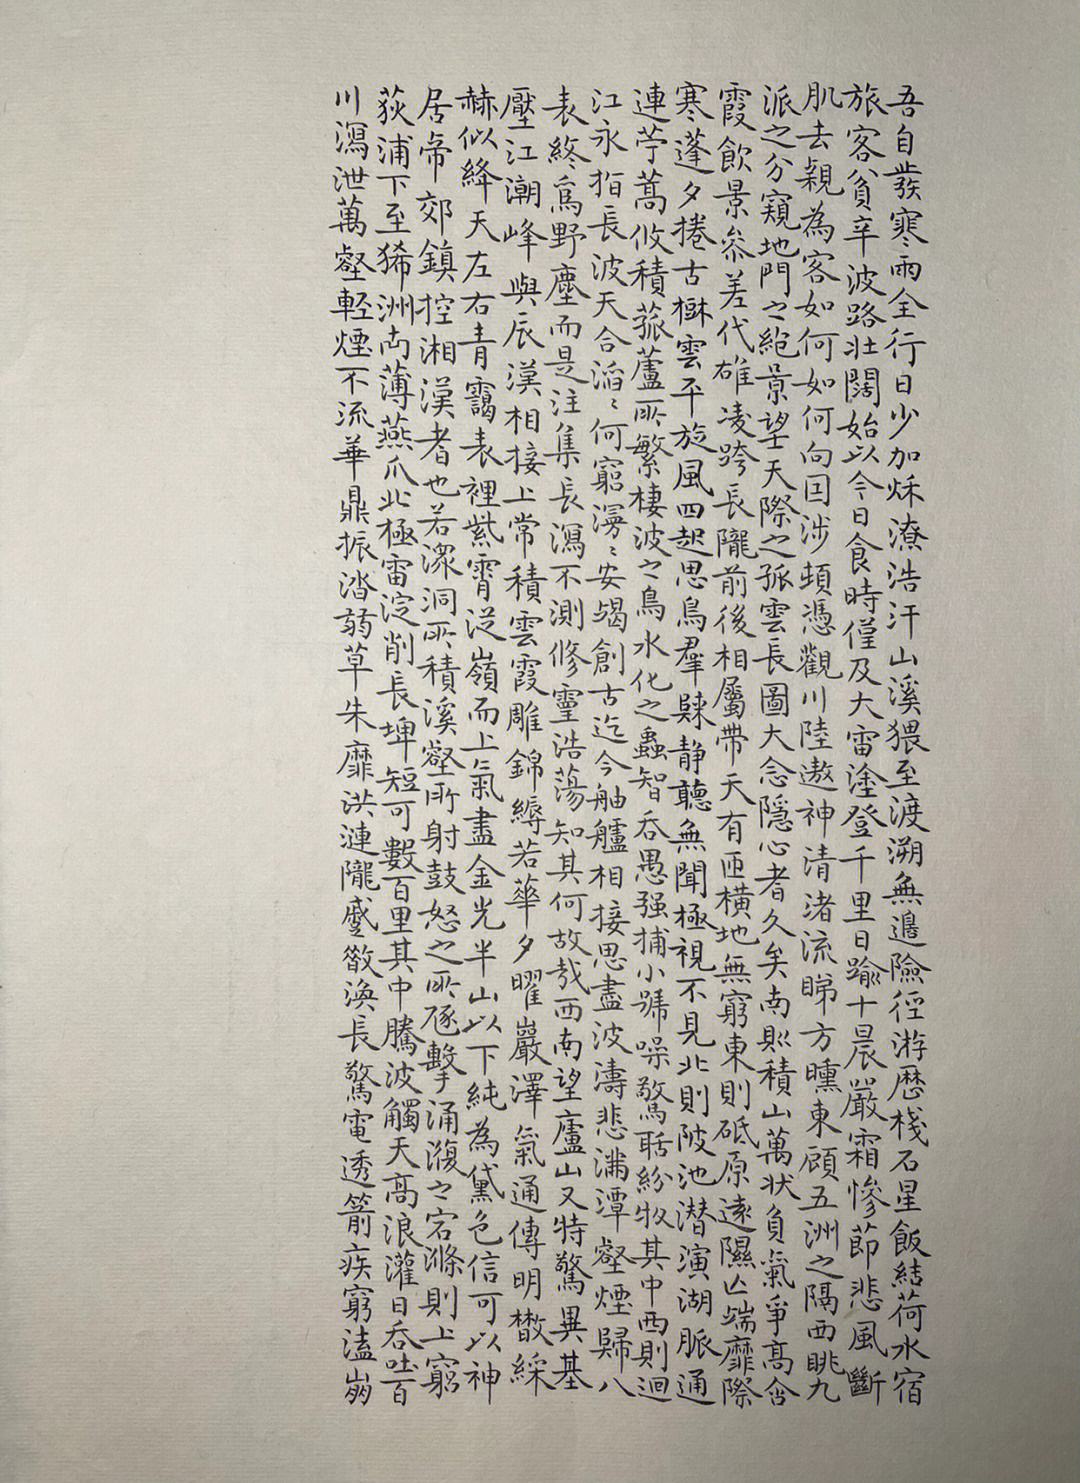 吾自發寒雨全行日少加秌潦浩汗山溪猥至渡溯無邊險徑游歷棧石星飯結荷水宿
旅客貧辛波路壯闊始以今日食時僅及大雷塗登千里日踰十晨嚴霜慘節悲風斷
肌去親為客如何如何向因涉頓憑觀川陸遨神清渚流睇方曛東顧五洲之隔西眺九
派之分窺地門之絕景望天際之孤雲長圖大念隱心者久矣南則積山萬狀負氣爭高含
霞飲景參差代雄凌跨長隴前後相屬帶天有匝橫地無窮東則砥原遠隰亡端靡際
寒蓬夕捲古樹雲平旋風四起思鳥羣歸静聽無聞極視不見北則陂池潛演湖脈通
連苧蒿攸積菰蘆所繁棲波之鳥水化之蟲智吞愚强捕小號噪驚聒紛牣其中西則迴
江永指長波天合滔〻何窮漫〻安竭創古迄今舳艫相接思盡波濤悲滿潭壑煙歸八
表終為野塵而是注集長瀉不測修靈浩蕩知其何故哉西南望廬山又特驚異基
壓江潮峰與辰漢相接上常積雲霞雕錦縟若華夕曜巖澤氣通傳明散綵
赫似絳天左右青靄表裡紫霄從嶺而上氣盡金光半山以下純為黛色信可以神
居帝郊鎮控湘漢者也若潨洞所積溪壑所射鼓怒之所豗擊涌澓之宕滌則上窮
荻浦下至狶洲南薄燕爪北極雷淀削長埤短可數百里其中騰波觸天高浪灌日吞吐百
川瀉泄萬壑輕煙不流華鼎振涾弱草朱靡洪漣隴蹙散渙長驚電透箭疾窮溘崩